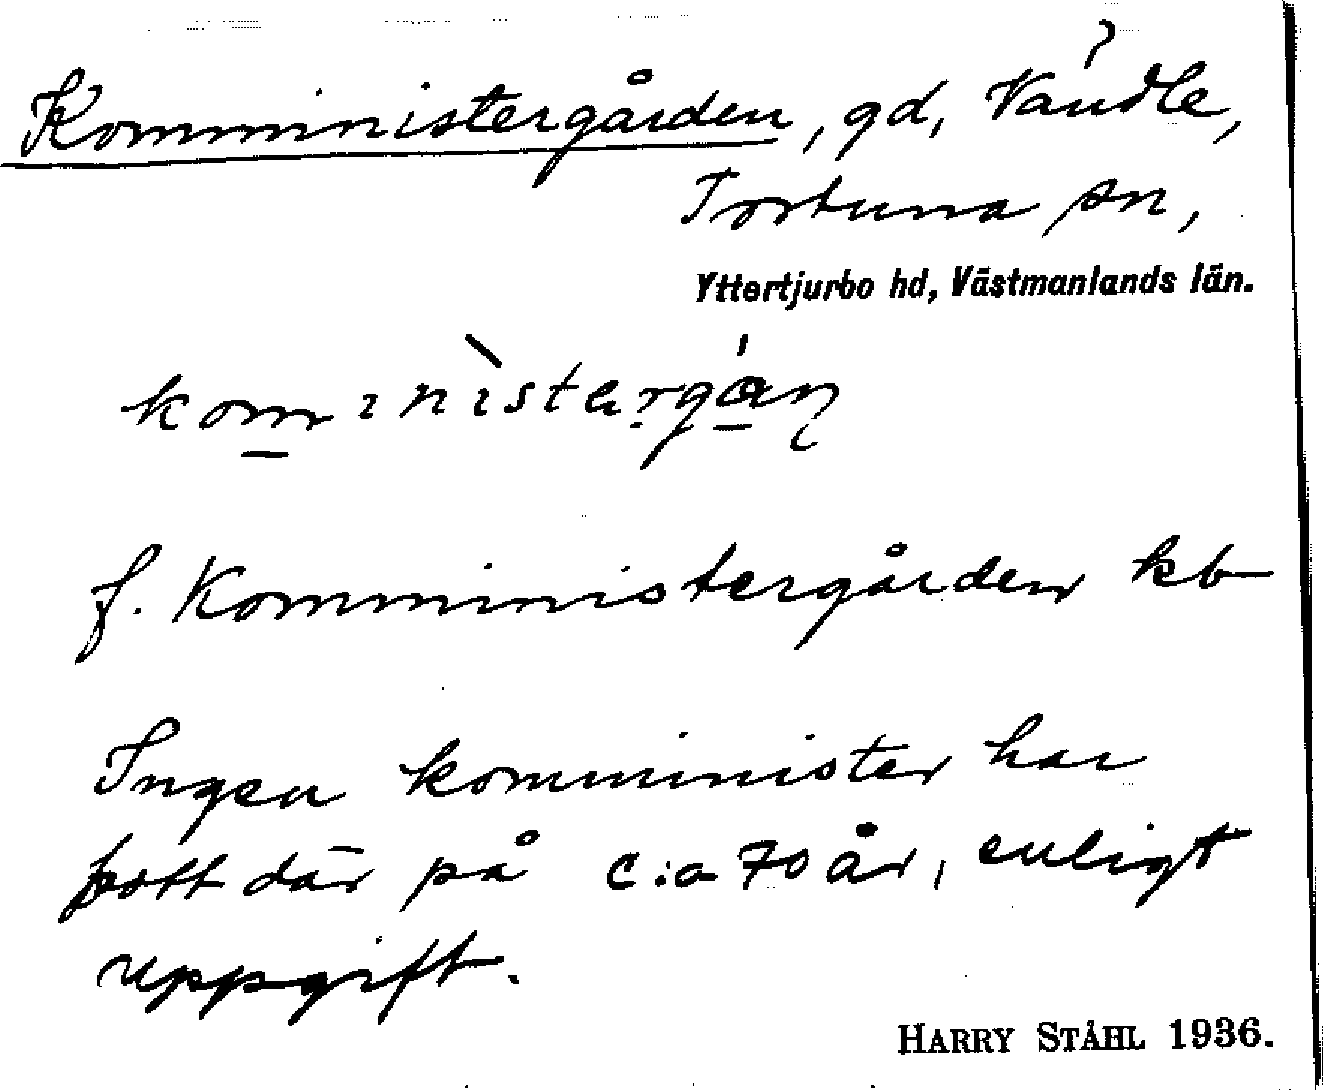 Komministergården, gd, Vändle,
Tortuna sn,
Yttertjurbo hd, Västmanlands län.
f. Komministergården kb
Ingen komminister har
bott där på c:a 70 år, enligt
uppgift.
HARRY STÅHL 1936.